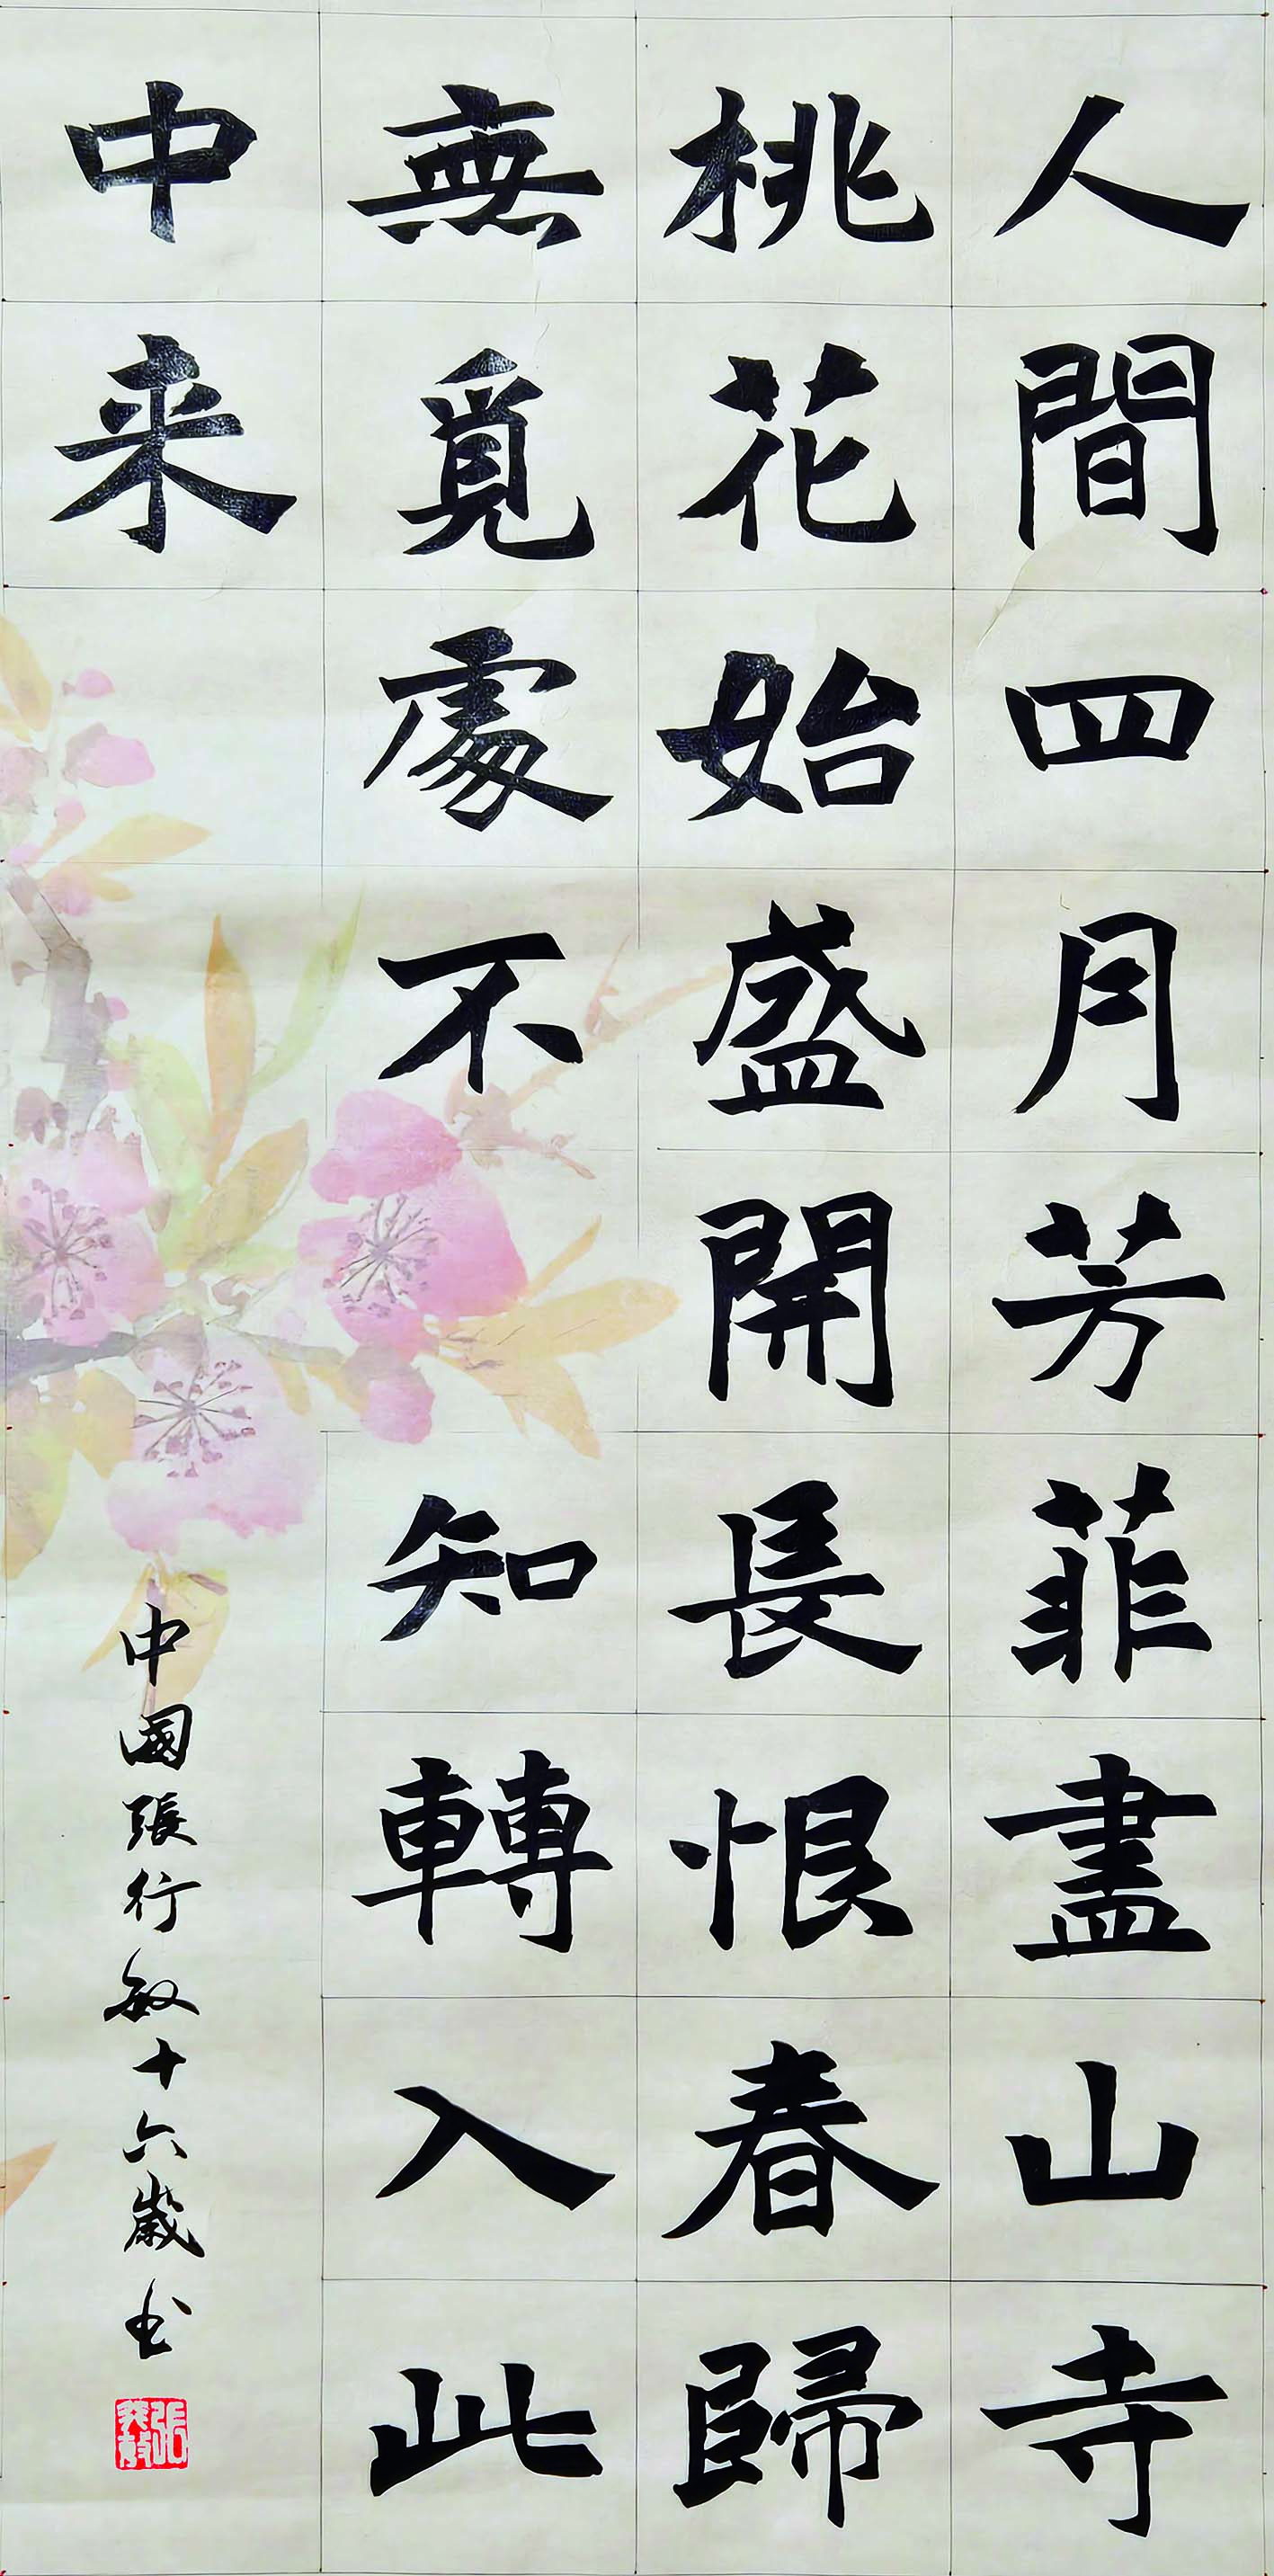 人間四月芳菲盡山寺
桃花始盛開長恨春歸
無覓處不知轉入此
中来
中國張行敏十六歲书